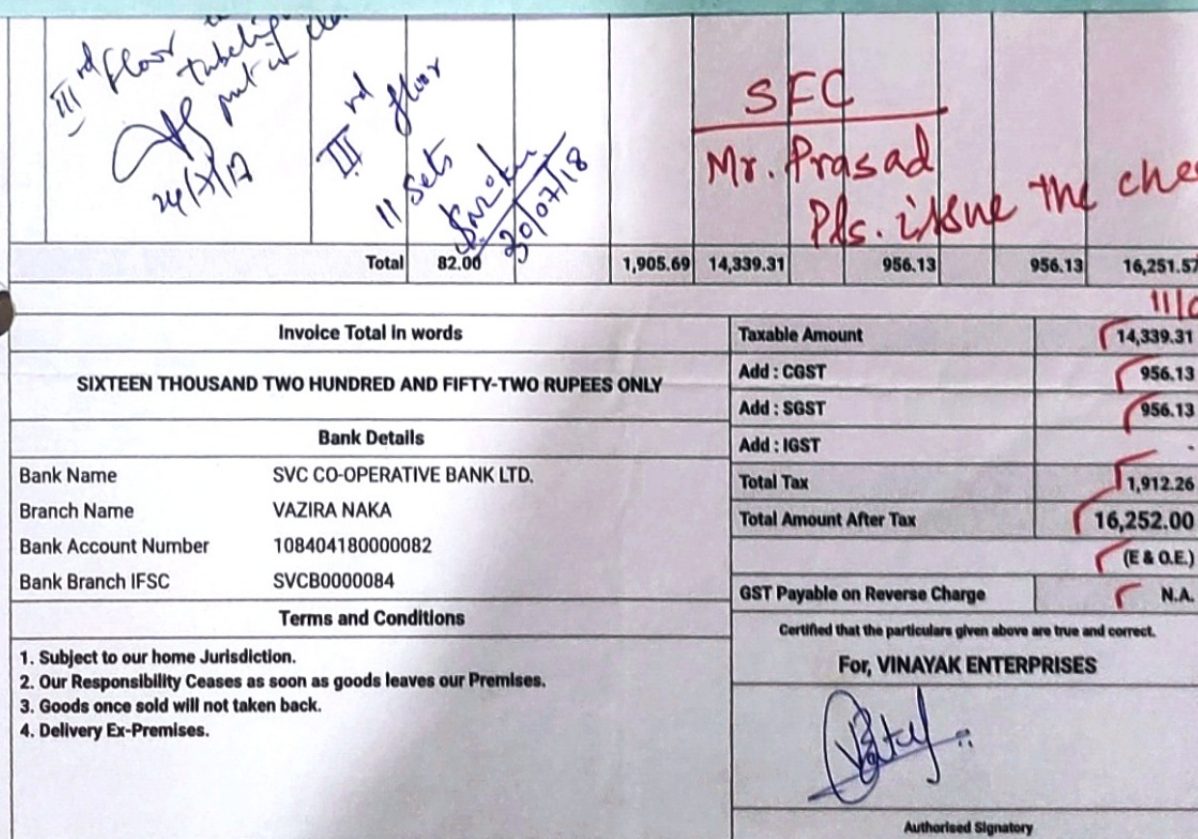 IIIrd floor
tubelight
put it
24/7/17
IIIrd floor
11 Sets
30/07/18
SFC
Mr. Prasad
Pls. issue the che
Total 82.00 1,905.69 14,339.31 956.13 956.13 16,251.57
Invoice Total in words
SIXTEEN THOUSAND TWO HUNDRED AND FIFTY-TWO RUPEES ONLY
Bank Details
Bank Name SVC CO-OPERATIVE BANK LTD.
Branch Name VAZIRA NAKA
Bank Account Number 108404180000082
Bank Branch IFSC SVCB0000084
Terms and Conditions
1. Subject to our home Jurisdiction.
2. Our Responsibility Ceases as soon as goods leaves our Premises.
3. Goods once sold will not taken back.
4. Delivery Ex-Premises.
Taxable Amount 14,339.31
Add : CGST 956.13
Add : SGST 956.13
Add : IGST -
Total Tax 1,912.26
Total Amount After Tax 16,252.00
(E & O.E.)
GST Payable on Reverse Charge N.A.
Certified that the particulars given above are true and correct.
For, VINAYAK ENTERPRISES
Authorised Signatory